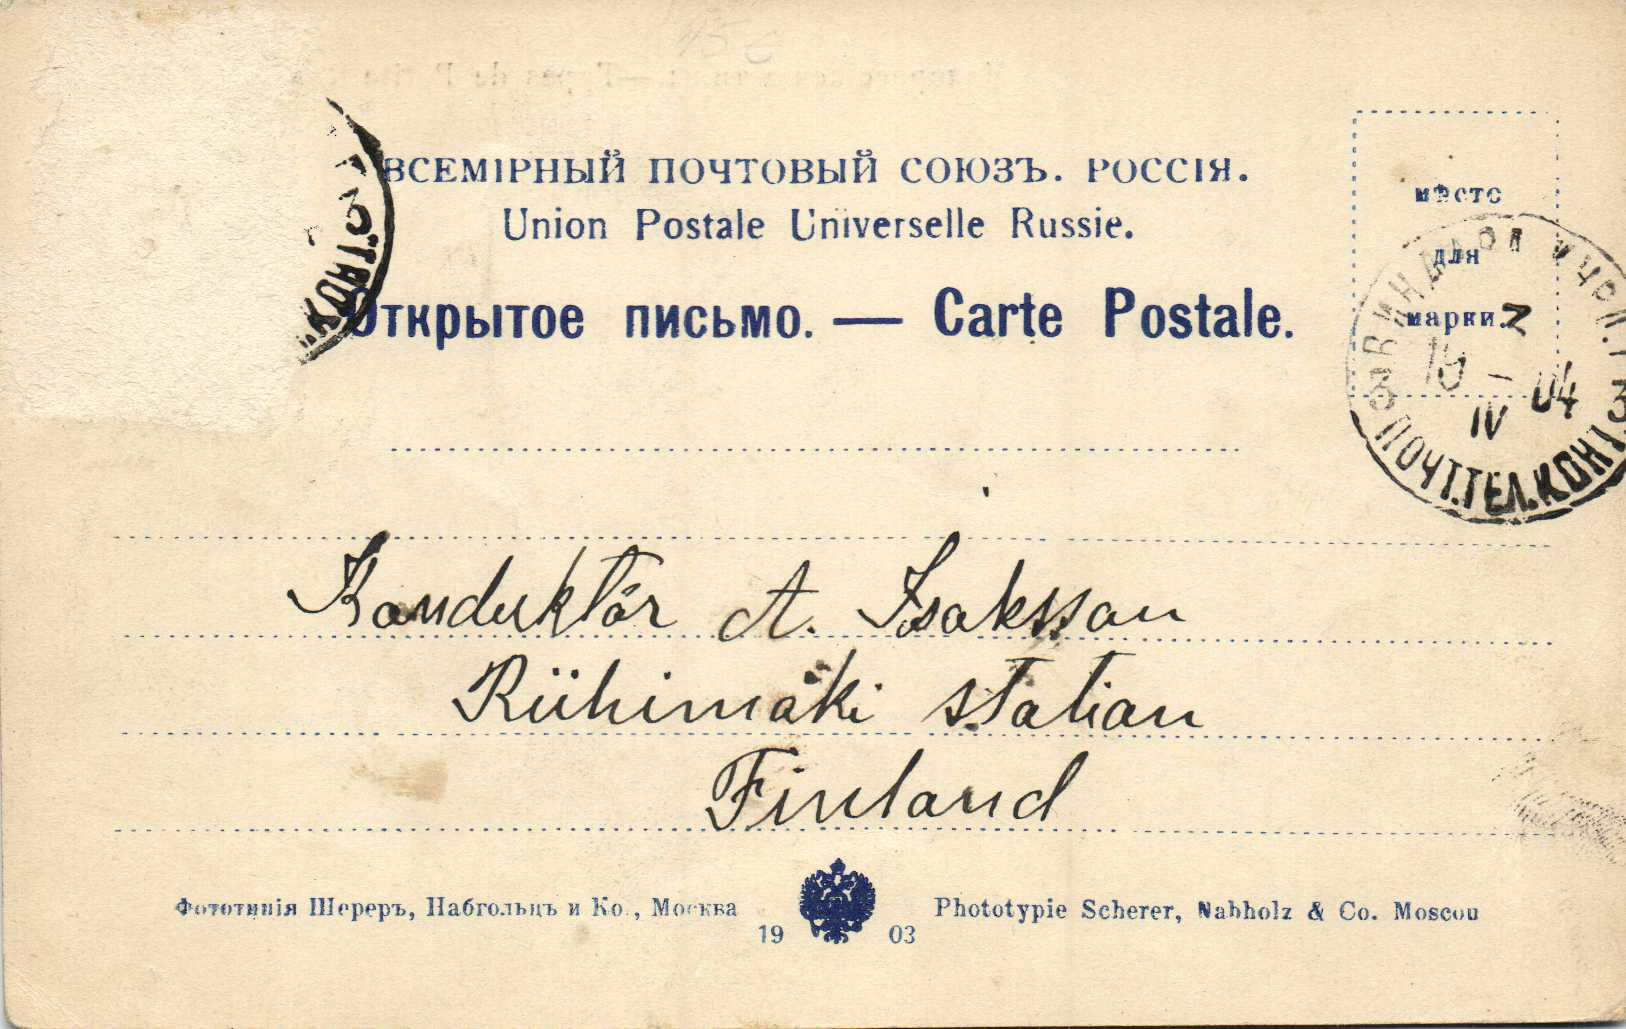 ВСЕМІРНЫЙ ПОЧТОВЫЙ СОЮЗЪ. РОССІЯ.
Union Postale Universelle Russie.
Открытое письмо. — Carte Postale.
мѣсто
для
марки.
19 - IV 04
ПОЧТ.ТЕЛ.КОНТ. 3
КОНТ. 3
Konduktör A. Isaksson
Riihimäki station
Finland
Фототипія Шереръ, Набгольцъ и Ко., Москва
1903
Phototypie Scherer, Nabholz & Co. Moscou